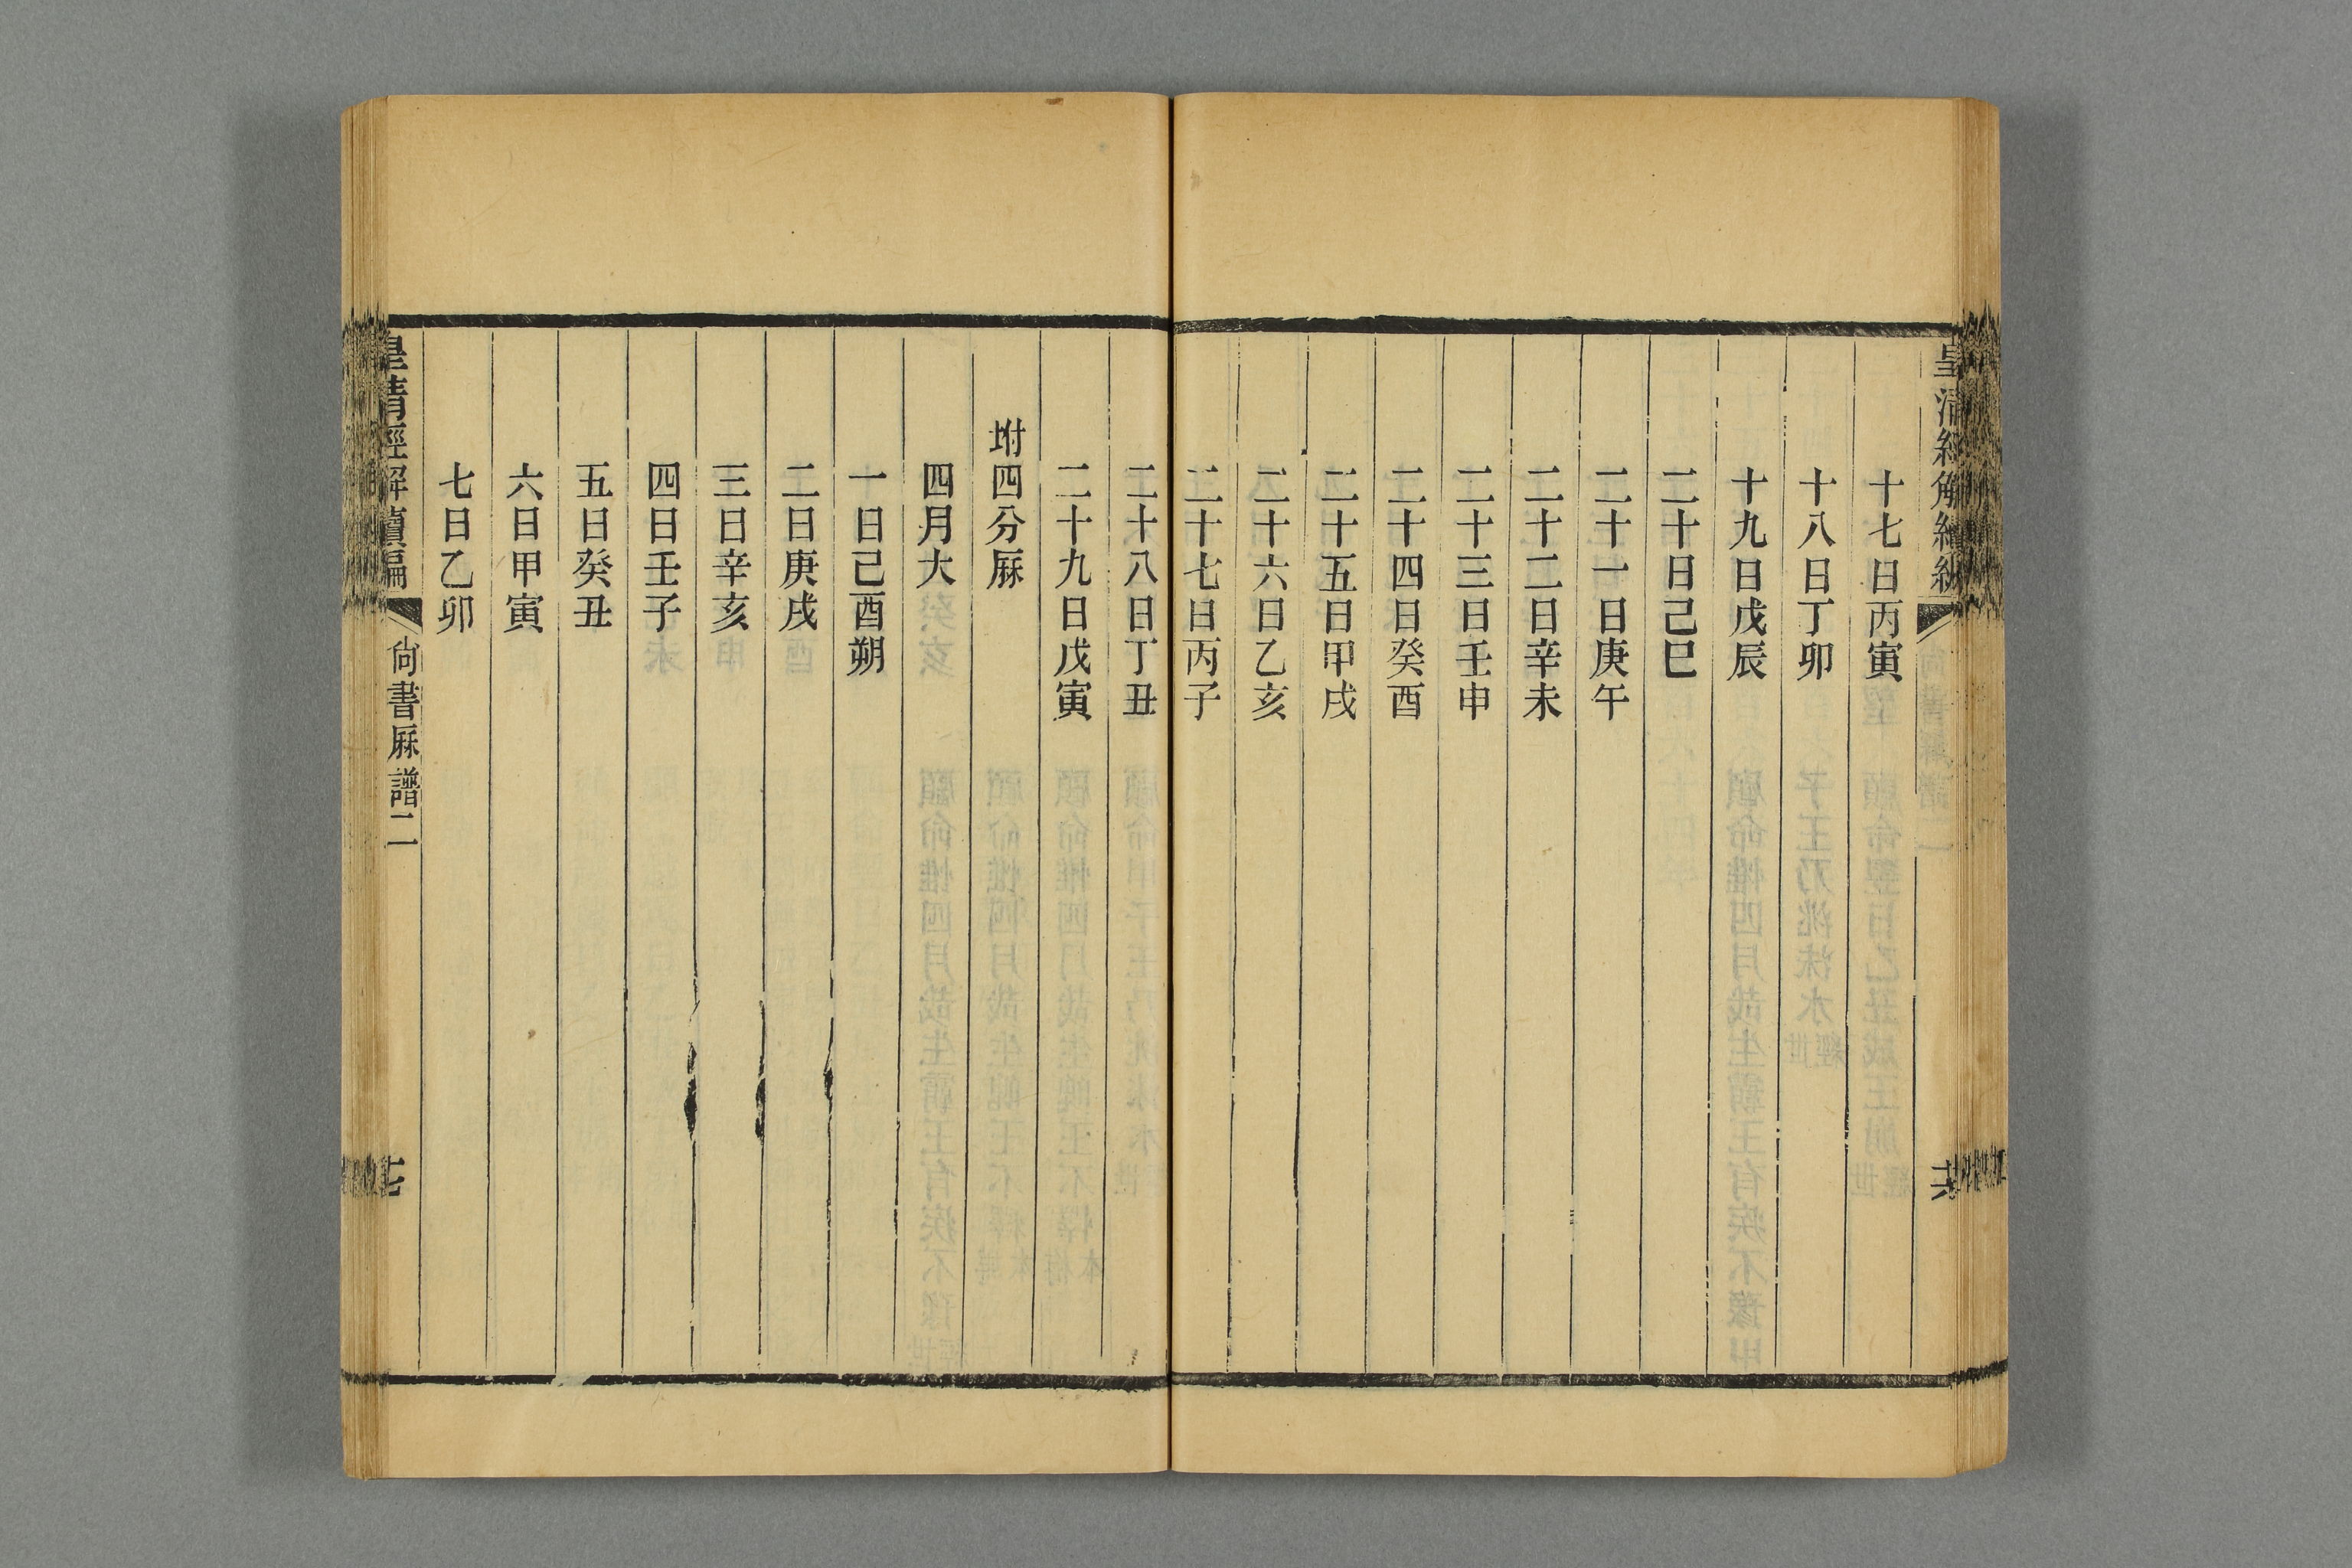 十七日丙寅
十八日丁卯
十九日戊辰
二十日己巳
二十一日庚午
二十二日辛未
二十三日壬申
二十四日癸酉
二十五日甲戌
二十六日乙亥
二十七日丙子
二十八日丁丑
二十九日戊寅
坿四分厤
四月大
一日己酉朔
二日庚戌
三日辛亥
四日壬子
五日癸丑
六日甲寅
七日乙卯
皇清經解續編
尙書厤譜二